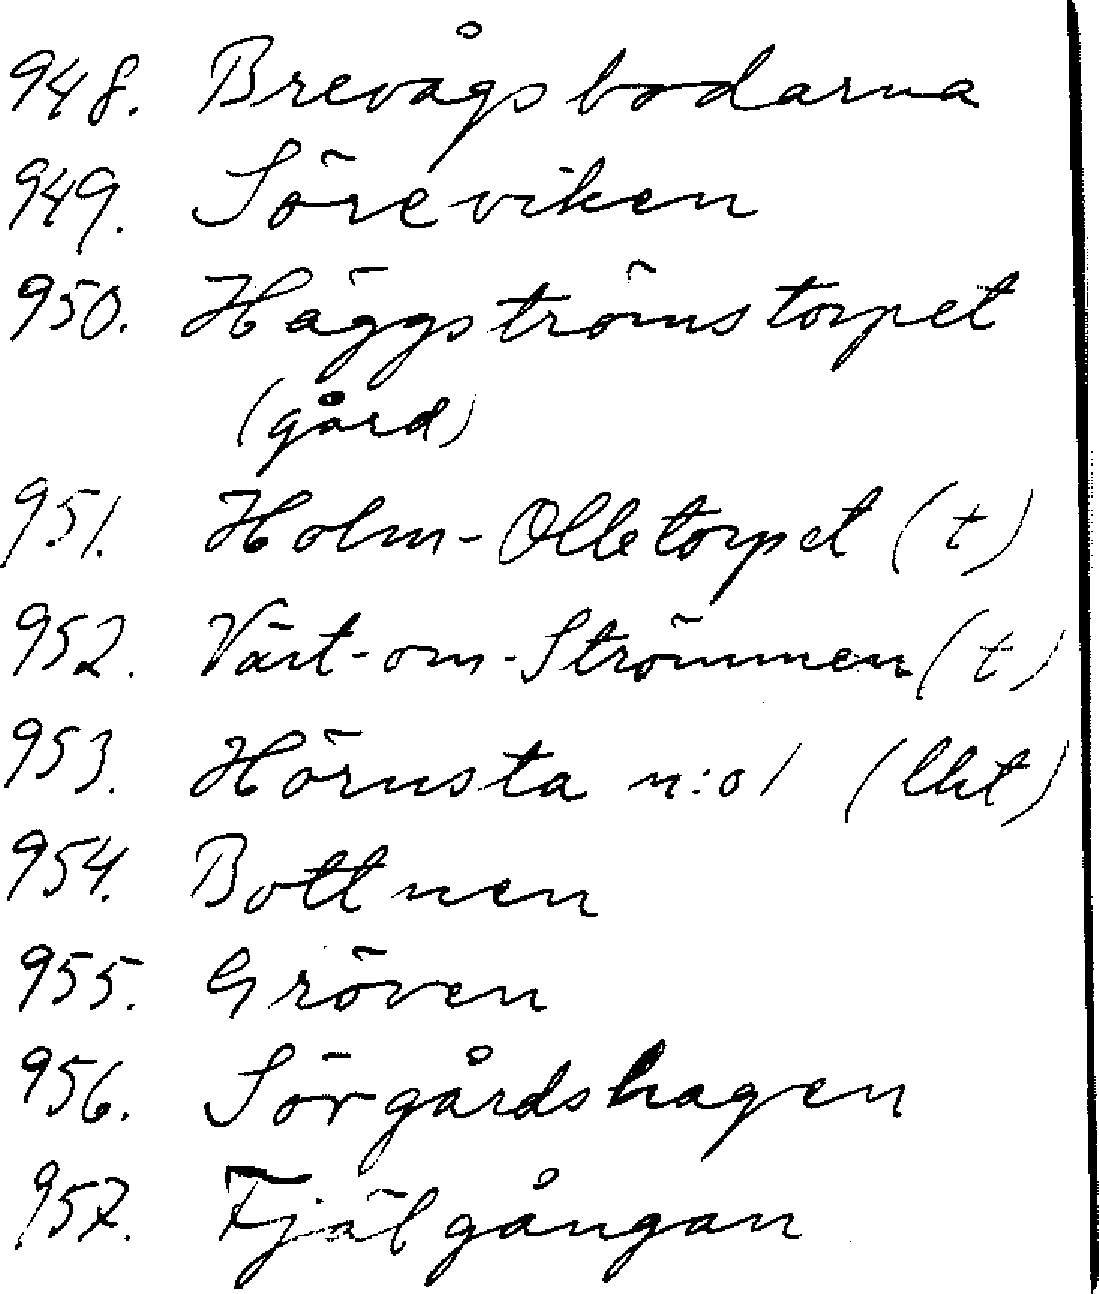 948. Brevågsbodarna
949. Söreviken
950. Häggströmstorpet
(gård)
951. Holm-Olletorpet (t)
952. Väst-om-Strömmen (t)
953. Hörnsta n:o 1 (lht)
954. Bottnen
955. Gröven
956. Sörgårdshagen
957. Fjälgångan